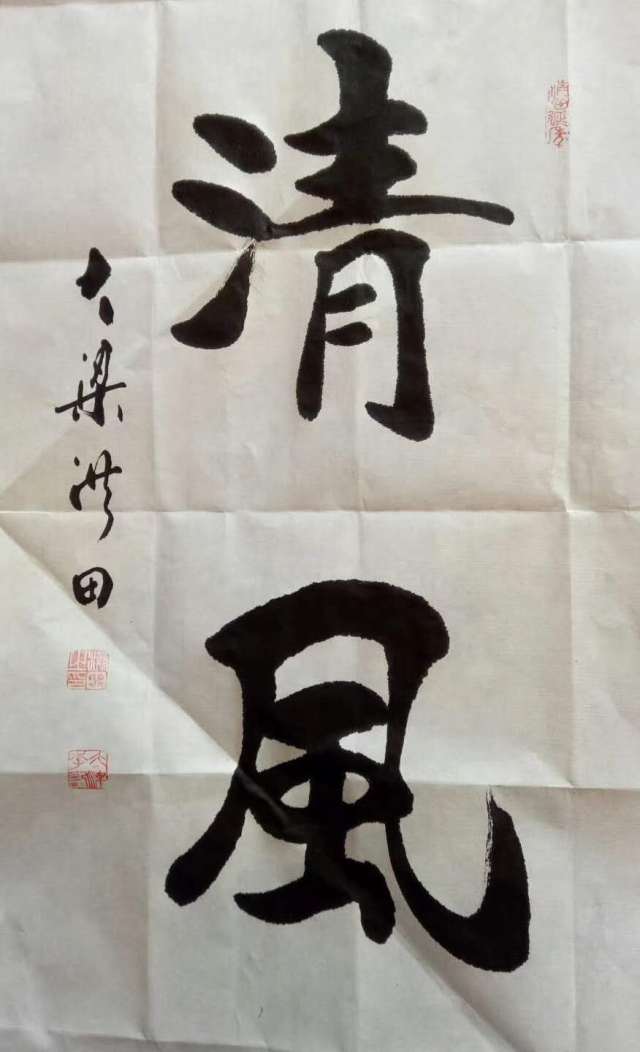 清風
大梁洪田